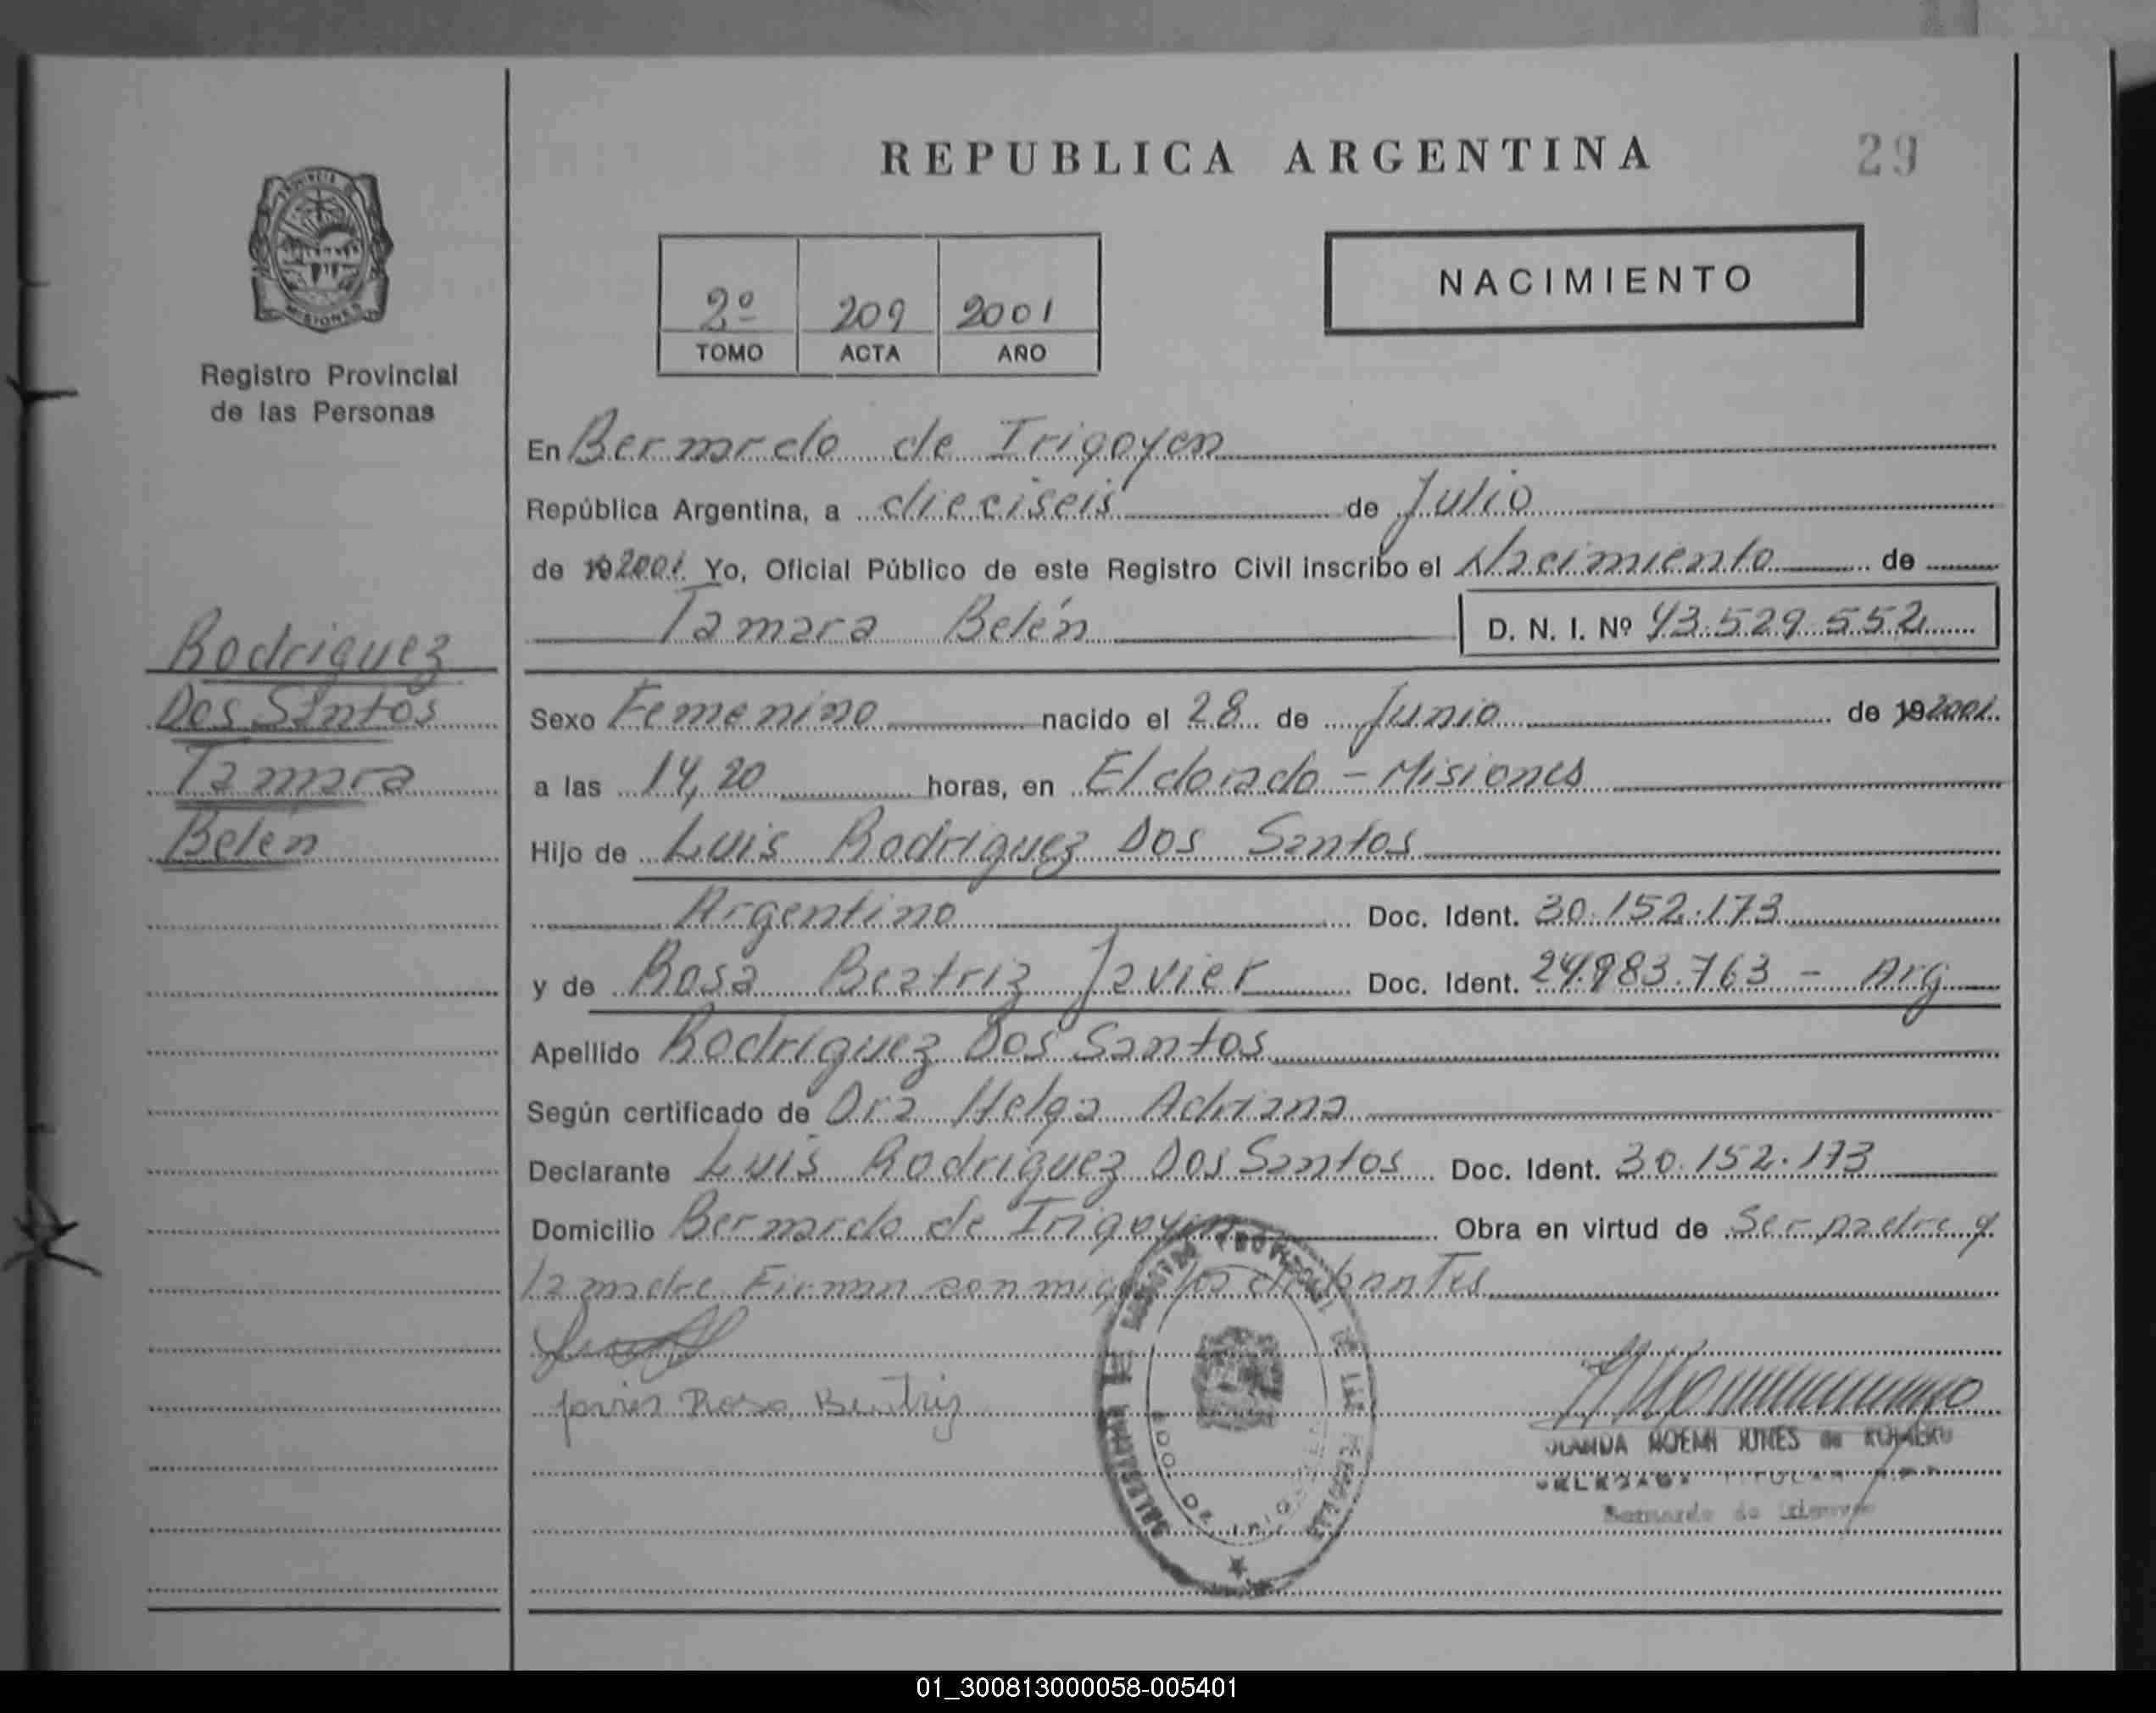 REPUBLICA ARGENTINA
29
MISIONES
Registro Provincial
de las Personas
2º 209 2001
TOMO ACTA AÑO
NACIMIENTO
En Bernardo de Irigoyen
República Argentina, a dieciseis de Julio
de 19 2001. Yo, Oficial Público de este Registro Civil inscribo el Nacimiento de
Tamara Belén D. N. I. Nº 43.529.552
Rodriguez
Dos Santos
Tamara
Belén
Sexo Femenino nacido el 28 de Junio de 19 2001.
a las 14,20 horas, en Eldorado - Misiones
Hijo de Luis Rodriguez Dos Santos
Argentino Doc. Ident. 30.152.173
y de Rosa Beatriz Javier Doc. Ident. 24.983.763 - Arg
Apellido Rodriguez Dos Santos
Según certificado de Dra Helga Adriana
Declarante Luis Rodriguez Dos Santos Doc. Ident. 30.152.173
Domicilio Bernardo de Irigoyen Obra en virtud de Ser padre y
la madre Firman con migo
Javier Rosa Beatriz
NOEMI de ROMERO
TITULAR
Bernardo de Irigoyen
01_300813000058-005401